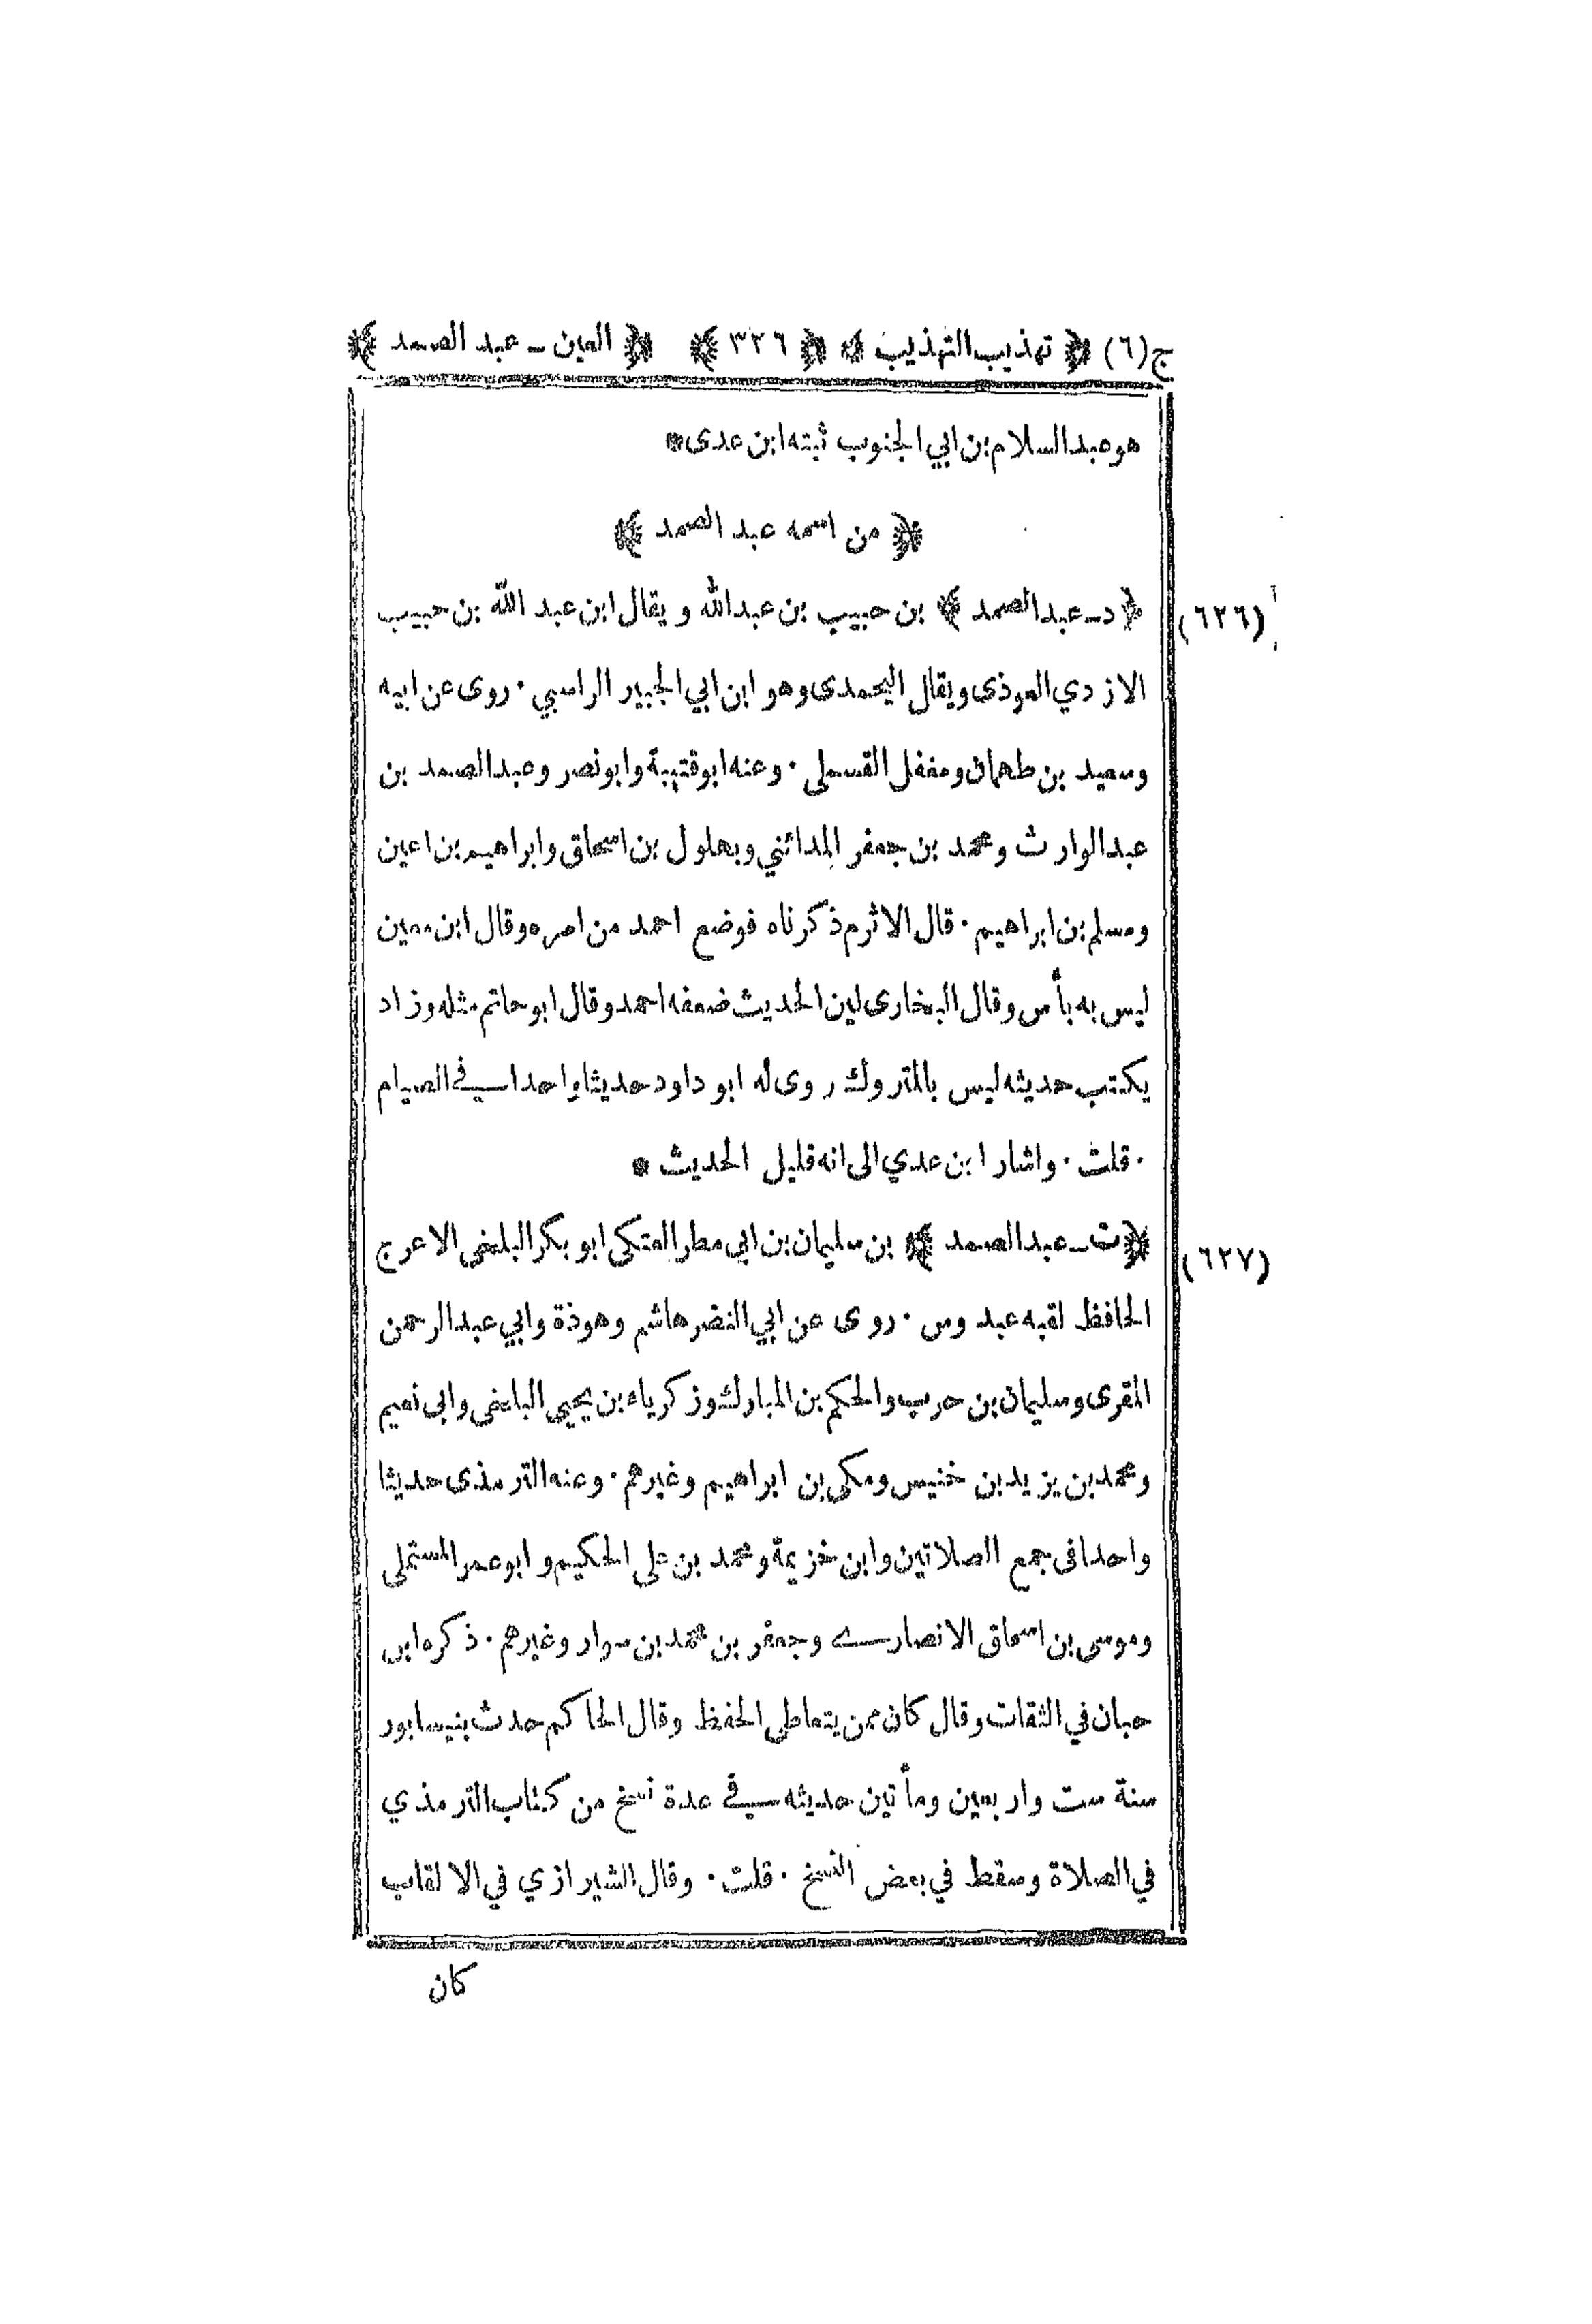 ج(٦) ﴿ تهذيب التهذيب ﴾ ﴿ ٣٢٦ ﴾ ﴿ العين ـ عبد الصمد ﴾
هو عبد السلام بن ابي الجنوب ثبته ابن عدى *
﴿ من اسمه عبد الصمد ﴾
(٦٢٦) ﴿ د ـ عبد الصمد ﴾ بن حبيب بن عبد الله ويقال ابن عبد الله بن حبيب
الازدي العوذى ويقال اليحمدى وهو ابن ابي الجبير الراسبي · روى عن ابيه
وسعيد بن طهمان ومغفل القسملى · وعنه ابو قتيبة وابو نصر وعبد الصمد بن
عبد الوارث ومحمد بن جعفر المدائني وبهلول بن اسحاق وابراهيم بن اعين
ومسلم بن ابراهيم · قال الاثرم ذكرناه فوضع احمد من امره وقال ابن معين
ليس به بأس وقال البخارى لين الحديث ضعفه احمد وقال ابو حاتم مثله وزاد
يكتب حديثه ليس بالمتروك روى له ابو داود حديثا واحدا في الصيام
· قلت · واشار ابن عدي الى انه قليل الحديث *
(٦٢٧) ﴿ ت ـ عبد الصمد ﴾ بن سليمان بن ابي مطر العتكى ابو بكر البلخى الاعرج
الحافظ لقبه عبدوس · روى عن ابي النضر هاشم وهوذة وابي عبد الرحمن
المقرى وسليمان بن حرب والحكم بن المبارك وزكرياء بن يحيى البلخى وابى نعيم
ومحمد بن يزيد بن خنيس ومكى بن ابراهيم وغيرهم · وعنه الترمذى حديثا
واحدا فى جمع الصلاتين وابن خزيمة ومحمد بن على الحكيم وابو عمر المستملى
وموسى بن اسحاق الانصارى وجعفر بن محمد بن سوار وغيرهم · ذكره ابن
حبان في الثقات وقال كان ممن يتعاطى الحفظ وقال الحاكم حدث بنيسابور
سنة ست واربعين ومأتين حديثه في عدة نسخ من كتاب الترمذي
في الصلاة وسقط في بعض النسخ · قلت · وقال الشيرازي في الالقاب
كان